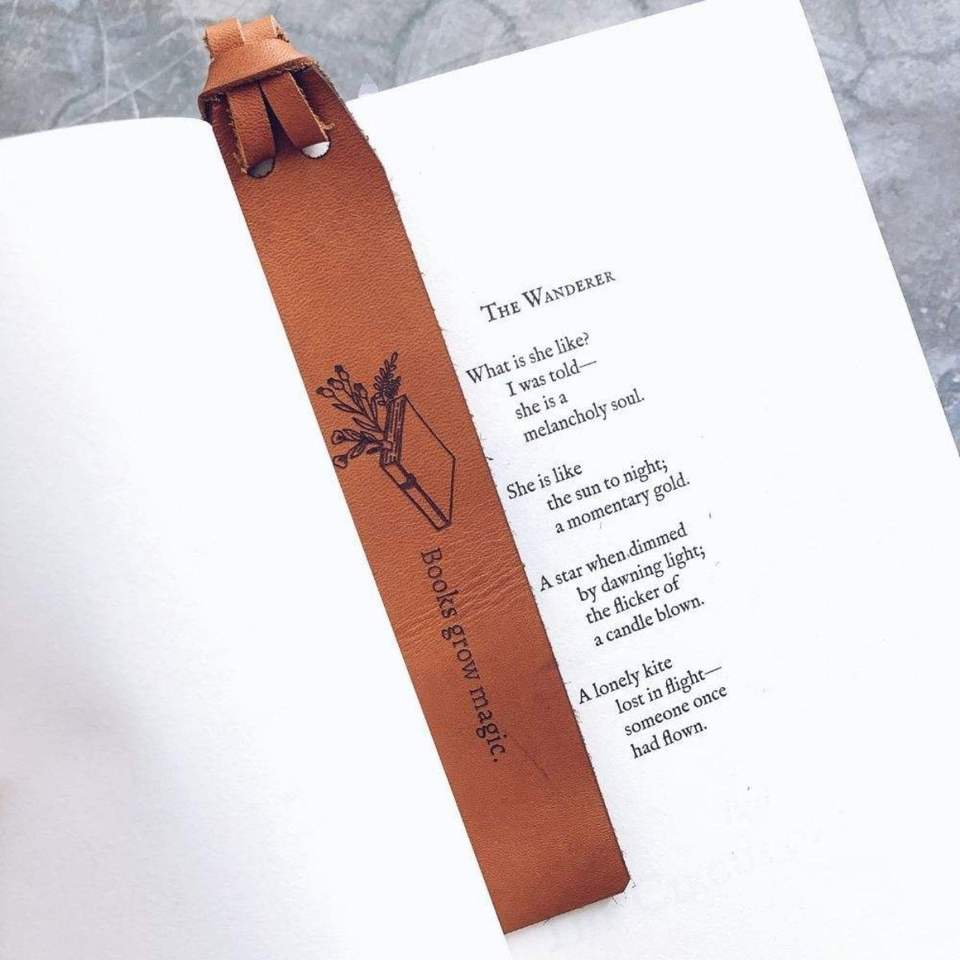 Books grow magic.
The Wanderer
What is she like?
I was told—
she is a
melancholy soul.
She is like
the sun to night;
a momentary gold.
A star when dimmed
by dawning light;
the flicker of
a candle blown.
A lonely kite
lost in flight—
someone once
had flown.